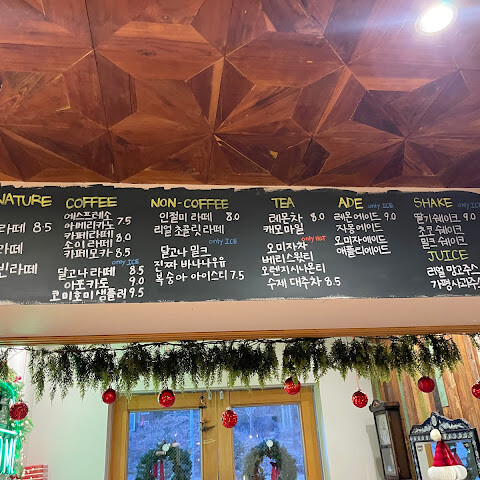 NATURE
라떼 8.5
라떼
빈라떼
COFFEE
에스프레소
아메리카노 7.5
카페라떼 8.0
소이라떼
카페모카 8.5
only ICE
달고나라떼 8.5
아포카토 9.0
코미호미샘플러 9.5
NON-COFFEE
인절미 라떼 8.0
리얼 초콜릿 라떼
only ICE
달고나 밀크
진짜 바나나우유
복숭아 아이스티 7.5
TEA
레몬차 8.0
캐모마일
only HOT
오미자차
베리스윗티
오렌지시나몬티
수제 대추차 8.5
ADE only ICE
레몬에이드 9.0
자몽에이드
오미자에이드
애플티에이드
SHAKE only ICE
딸기쉐이크 9.0
초코 쉐이크
밀크 쉐이크
JUICE
리얼 망고주스
가평사과주